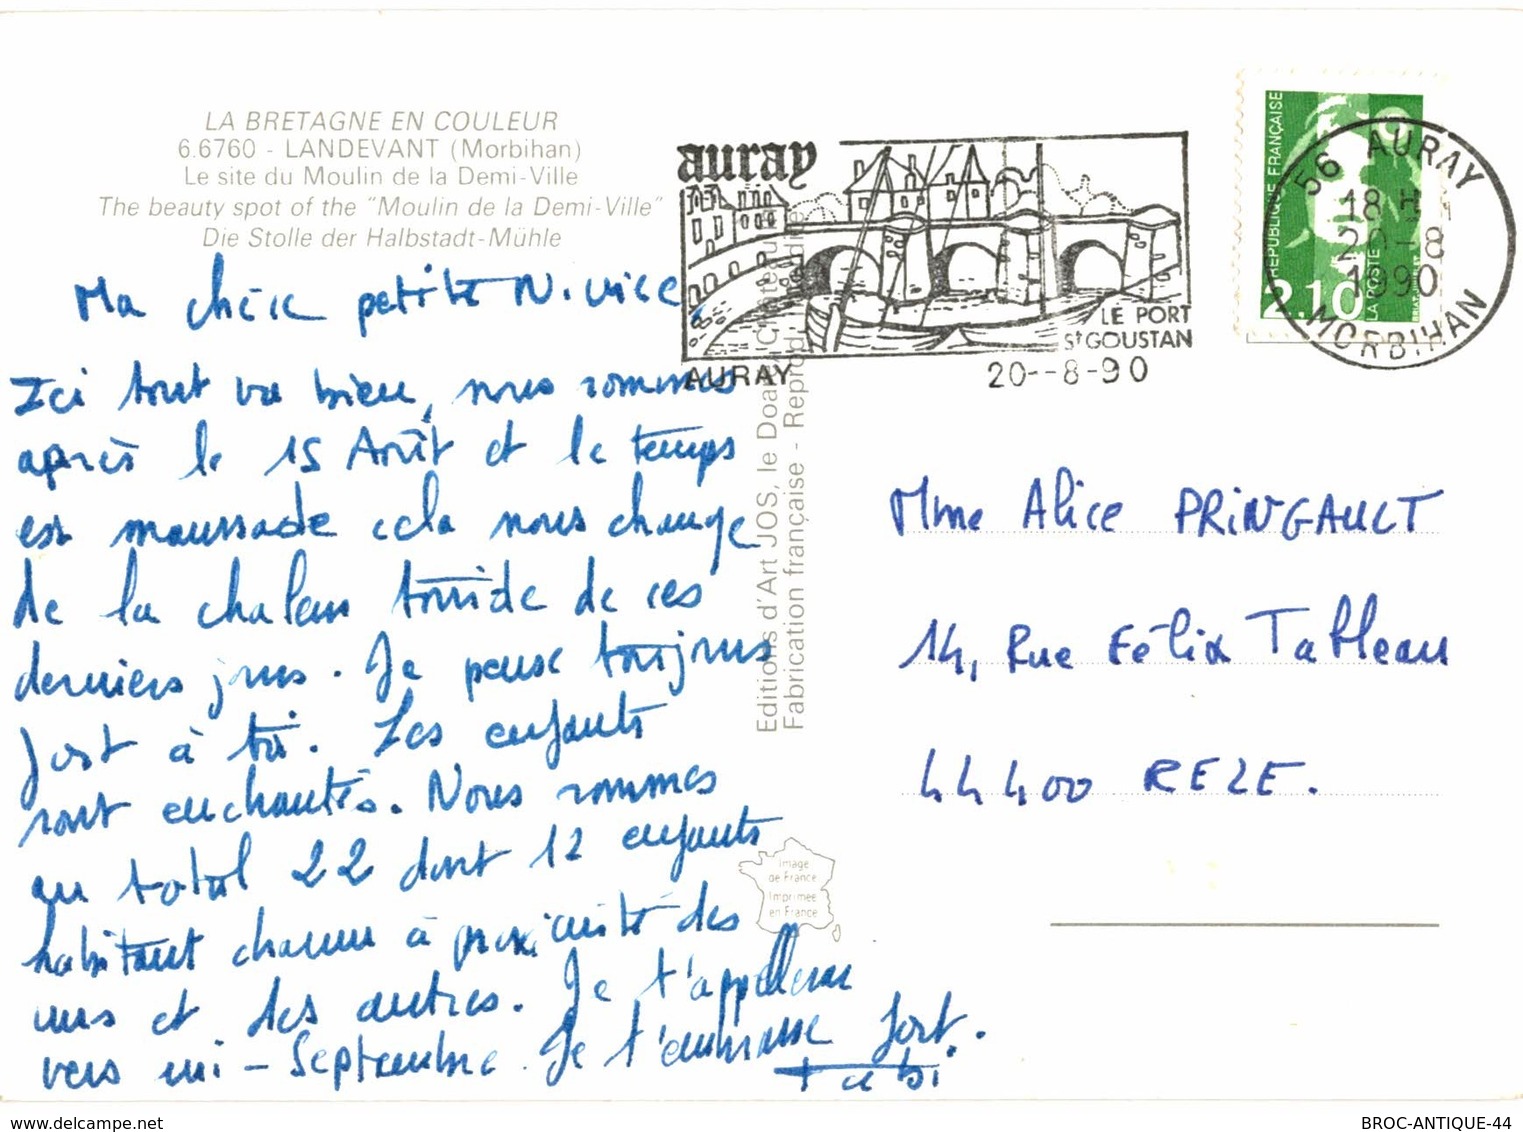 LA BRETAGNE EN COULEUR
6.6760 - LANDEVANT (Morbihan)
Le site du Moulin de la Demi-Ville
The beauty spot of the "Moulin de la Demi-Ville"
Die Stolle der Halbstadt-Mühle
Ma chère petite
Ici tout va bien, nous sommes
après le 15 Août et le temps
est maussade cela nous change
de la chaleur torride de ces
derniers jours. Je pense toujours
fort à toi. Les enfants
sont enchantés. Nous sommes
au total 22 dont 12 enfants
habitant chacun à proximité des
uns et des autres. Je t'appellerai
vers mi-Septembre. Je t'embrasse fort.
Editions d'Art JOS, le Doaré,
Fabrication française - Reprod.
auray
LE PORT
St GOUSTAN
AURAY
20--8-90
REPUBLIQUE FRANÇAISE
2.10
LA POSTE
56 AURAY
18 H
20-8
1990
MORBIHAN
Mme Alice PRINGAULT
14, Rue Félix Tableau
44400 REZE.
Image
de France
Imprimée
en France
www.delcampe.net
BROC-ANTIQUE-44